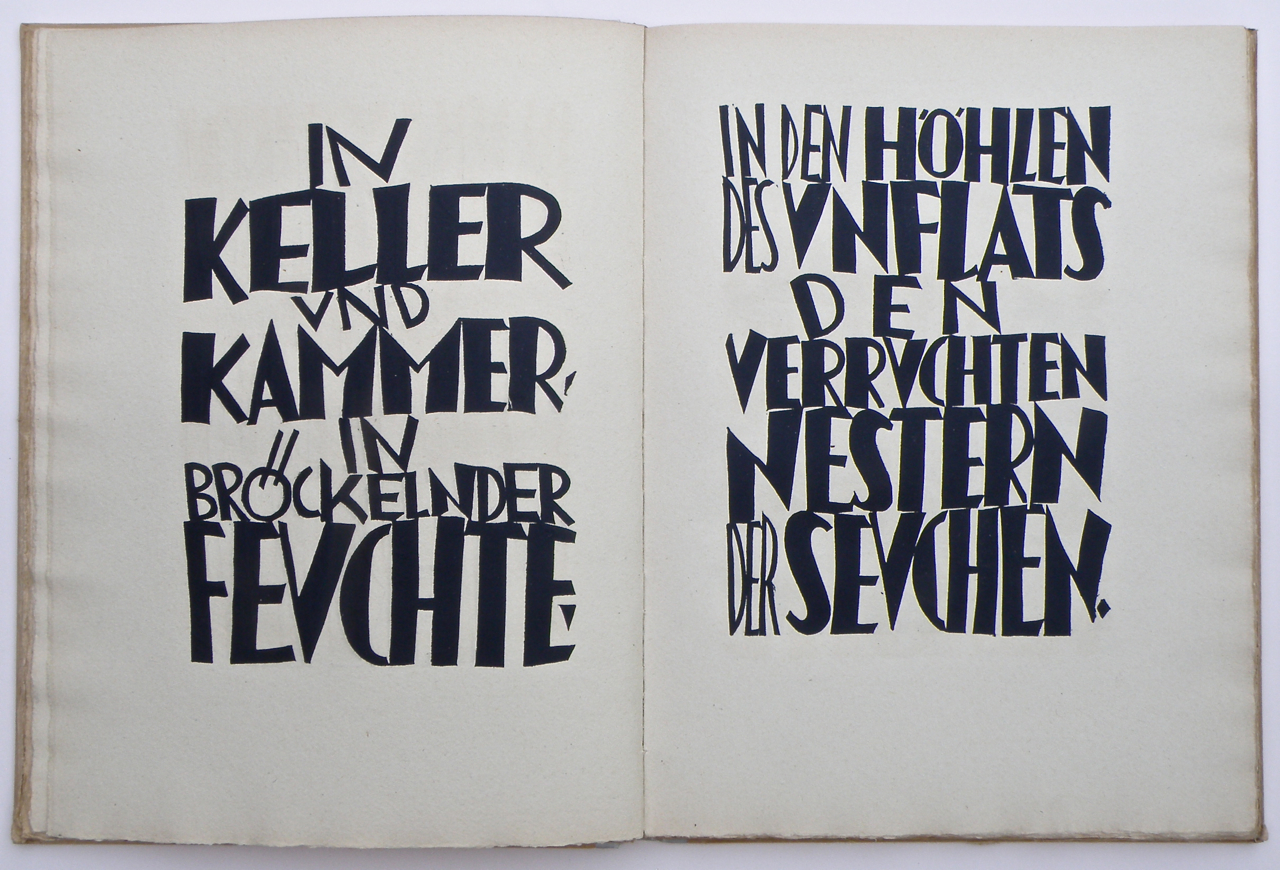 IN
KELLER
VND
KAMMER,
IN
BRÖCKELNDER
FEVCHTE,
IN DEN HÖHLEN
DES VNFLATS
DEN
VERRVCHTEN
NESTERN
DER SEVCHEN.